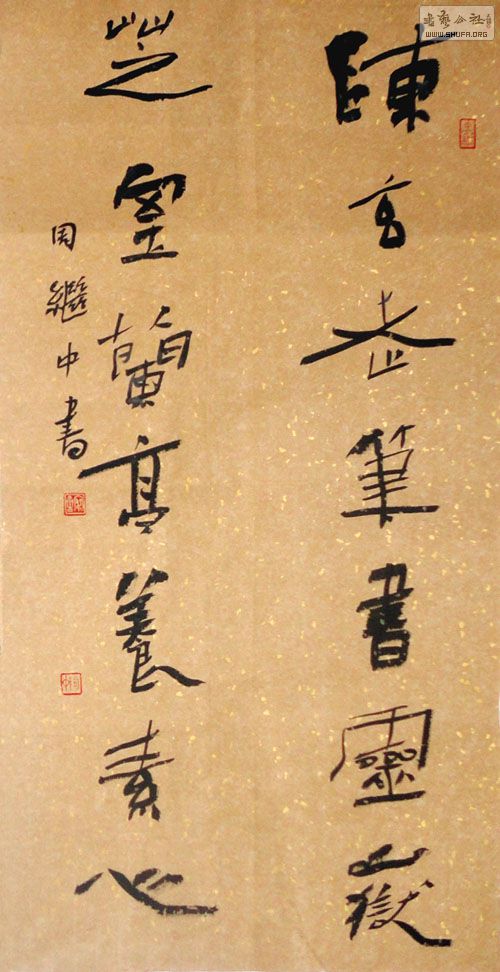 陳玄走筆書靈嶽
芝室蘭亭養素心
周繼中書
書藝公社
WWW.SHUFA.ORG